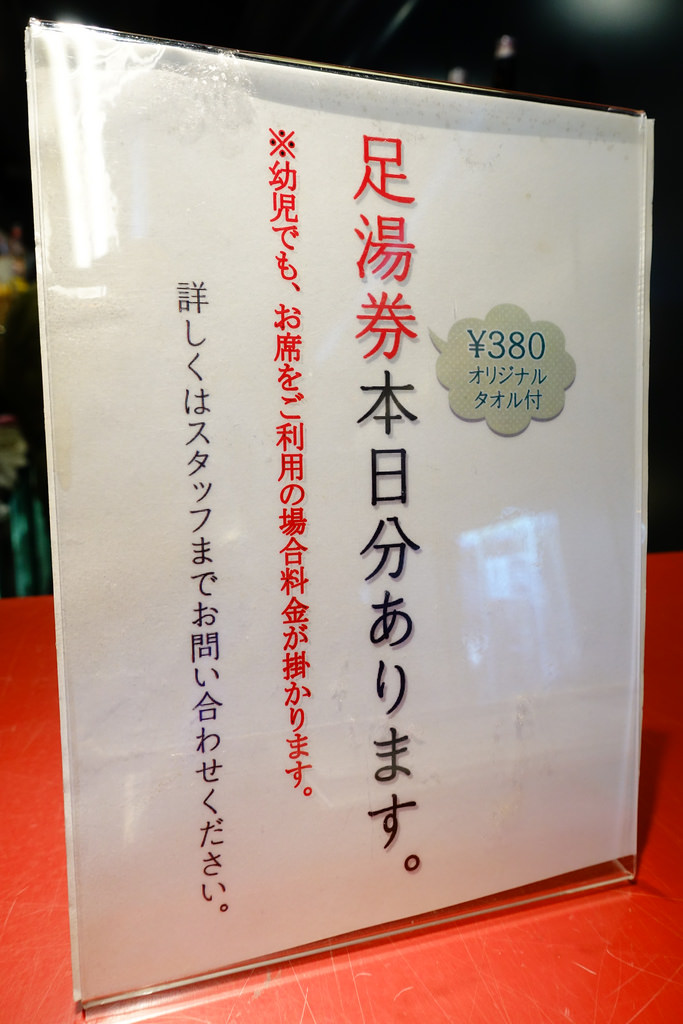 足湯券本日分あります。
¥380
オリジナル
タオル付
※幼児でも、お席をご利用の場合料金が掛かります。
詳しくはスタッフまでお問い合わせください。